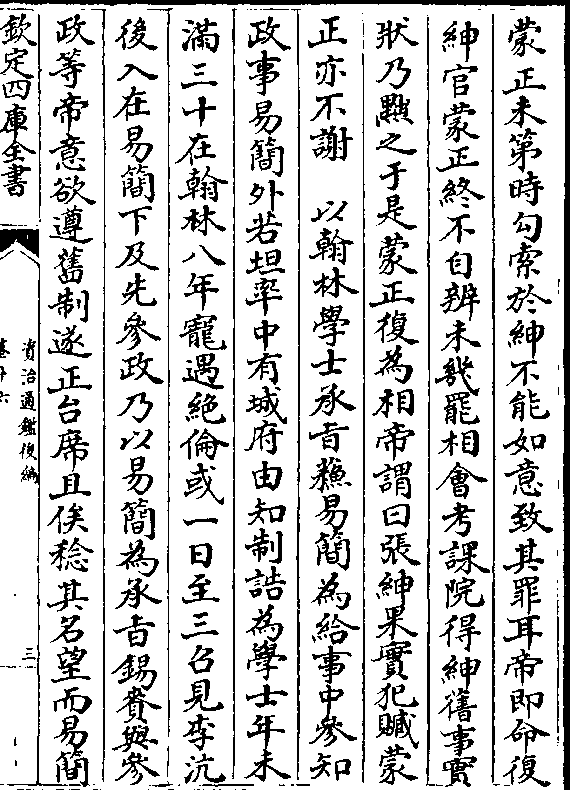 蒙正未第時勾索於紳不能如意致其罪耳帝即命復
紳官蒙正終不自辨未幾罷相會考課院得紳舊事實
狀乃黜之于是蒙正復為相帝謂曰張紳果實犯贓蒙
正亦不謝 以翰林學士承旨蘇易簡為給事中參知
政事易簡外若坦率中有城府由知制誥為學士年未
滿三十在翰林八年寵遇絶倫或一日至三召見李沆
後入在易簡下及先參政乃以易簡為承旨錫賚與參
政等帝意欲遵舊制遂正台席且俟稔其名望而易簡
欽定四庫全書
資治通鑑後編
卷十六
三